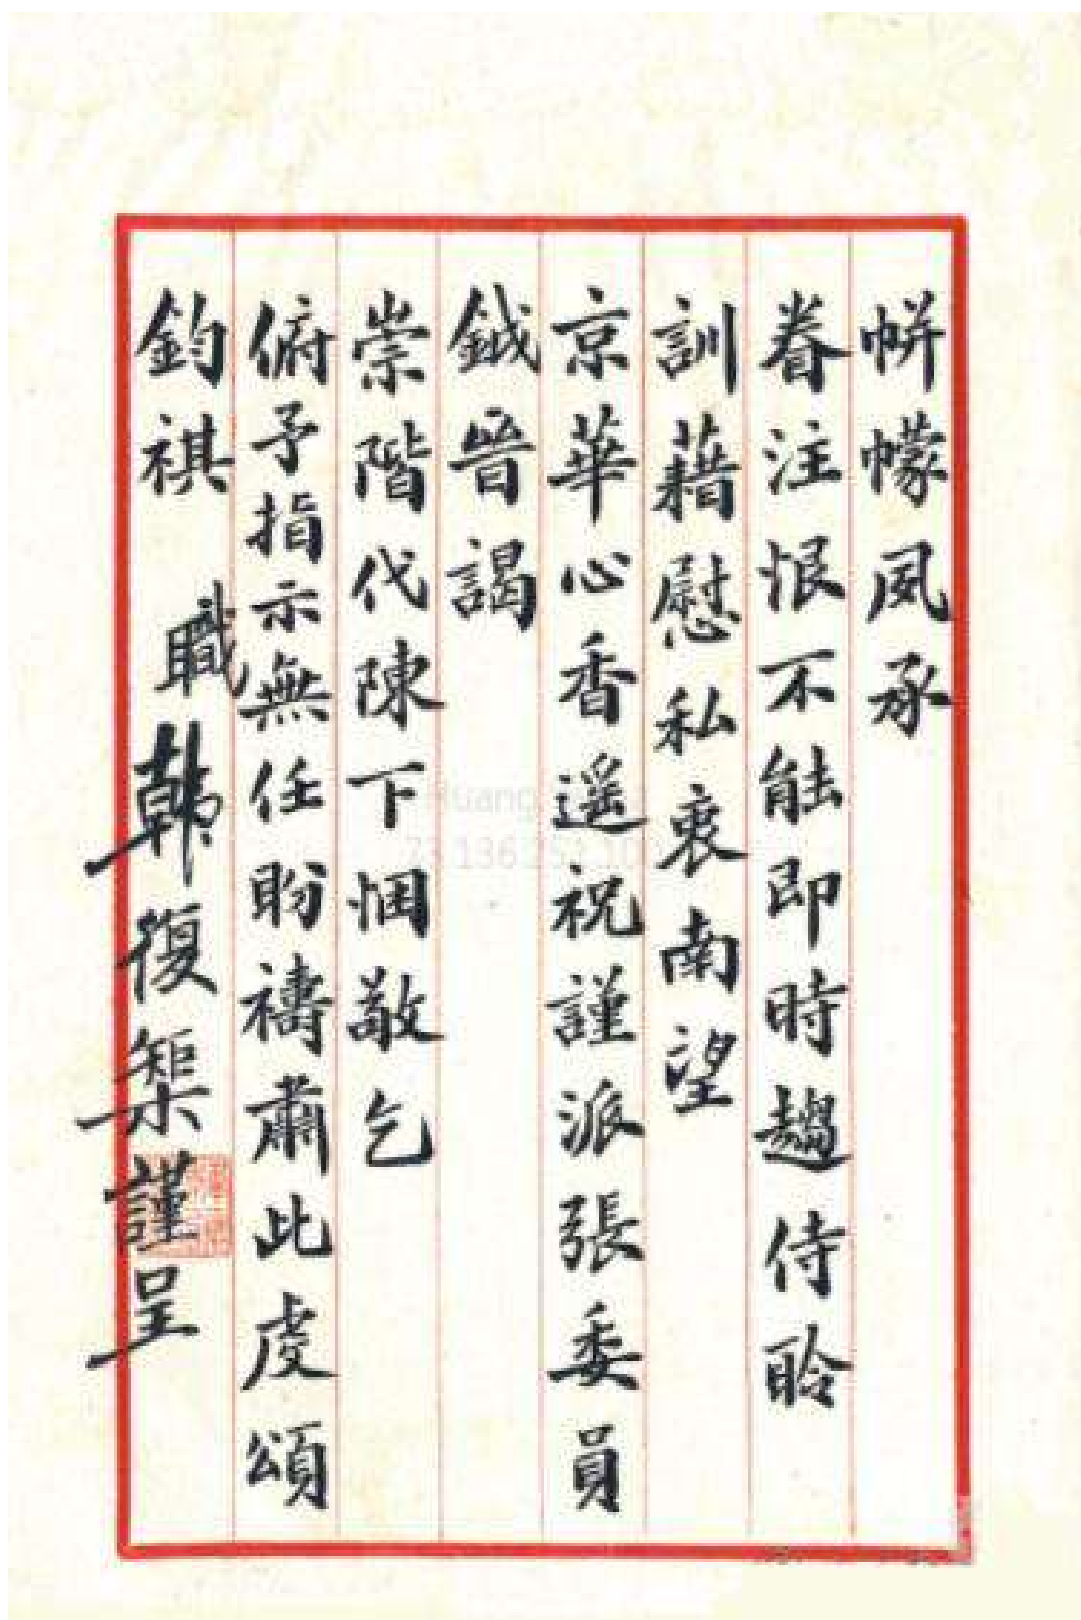 帡幪夙承
眷注恨不能即時趨侍聆
訓藉慰私衷南望
京華心香遥祝謹派張委員
鉞晉謁
崇階代陳下悃敬乞
俯予指示無任盼禱肅此虔頌
鈞祺 職韓復榘謹呈